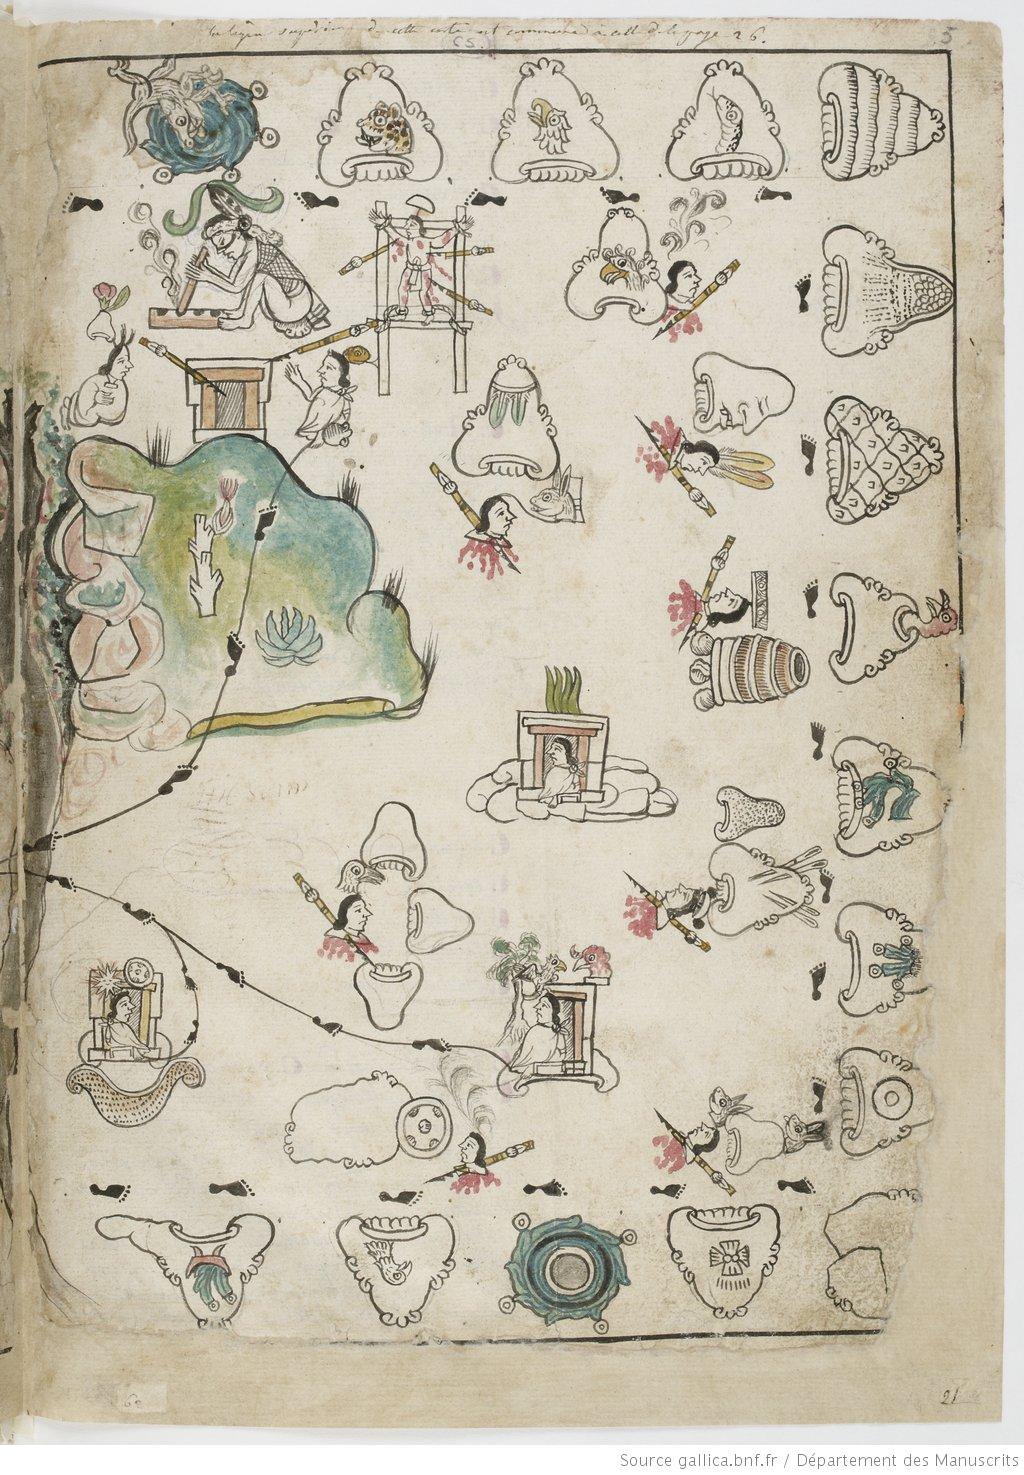 la ligne supérieure de cette carte est commune à celle de la page 26.
5
C5.
21
Source gallica.bnf.fr / Département des Manuscrits